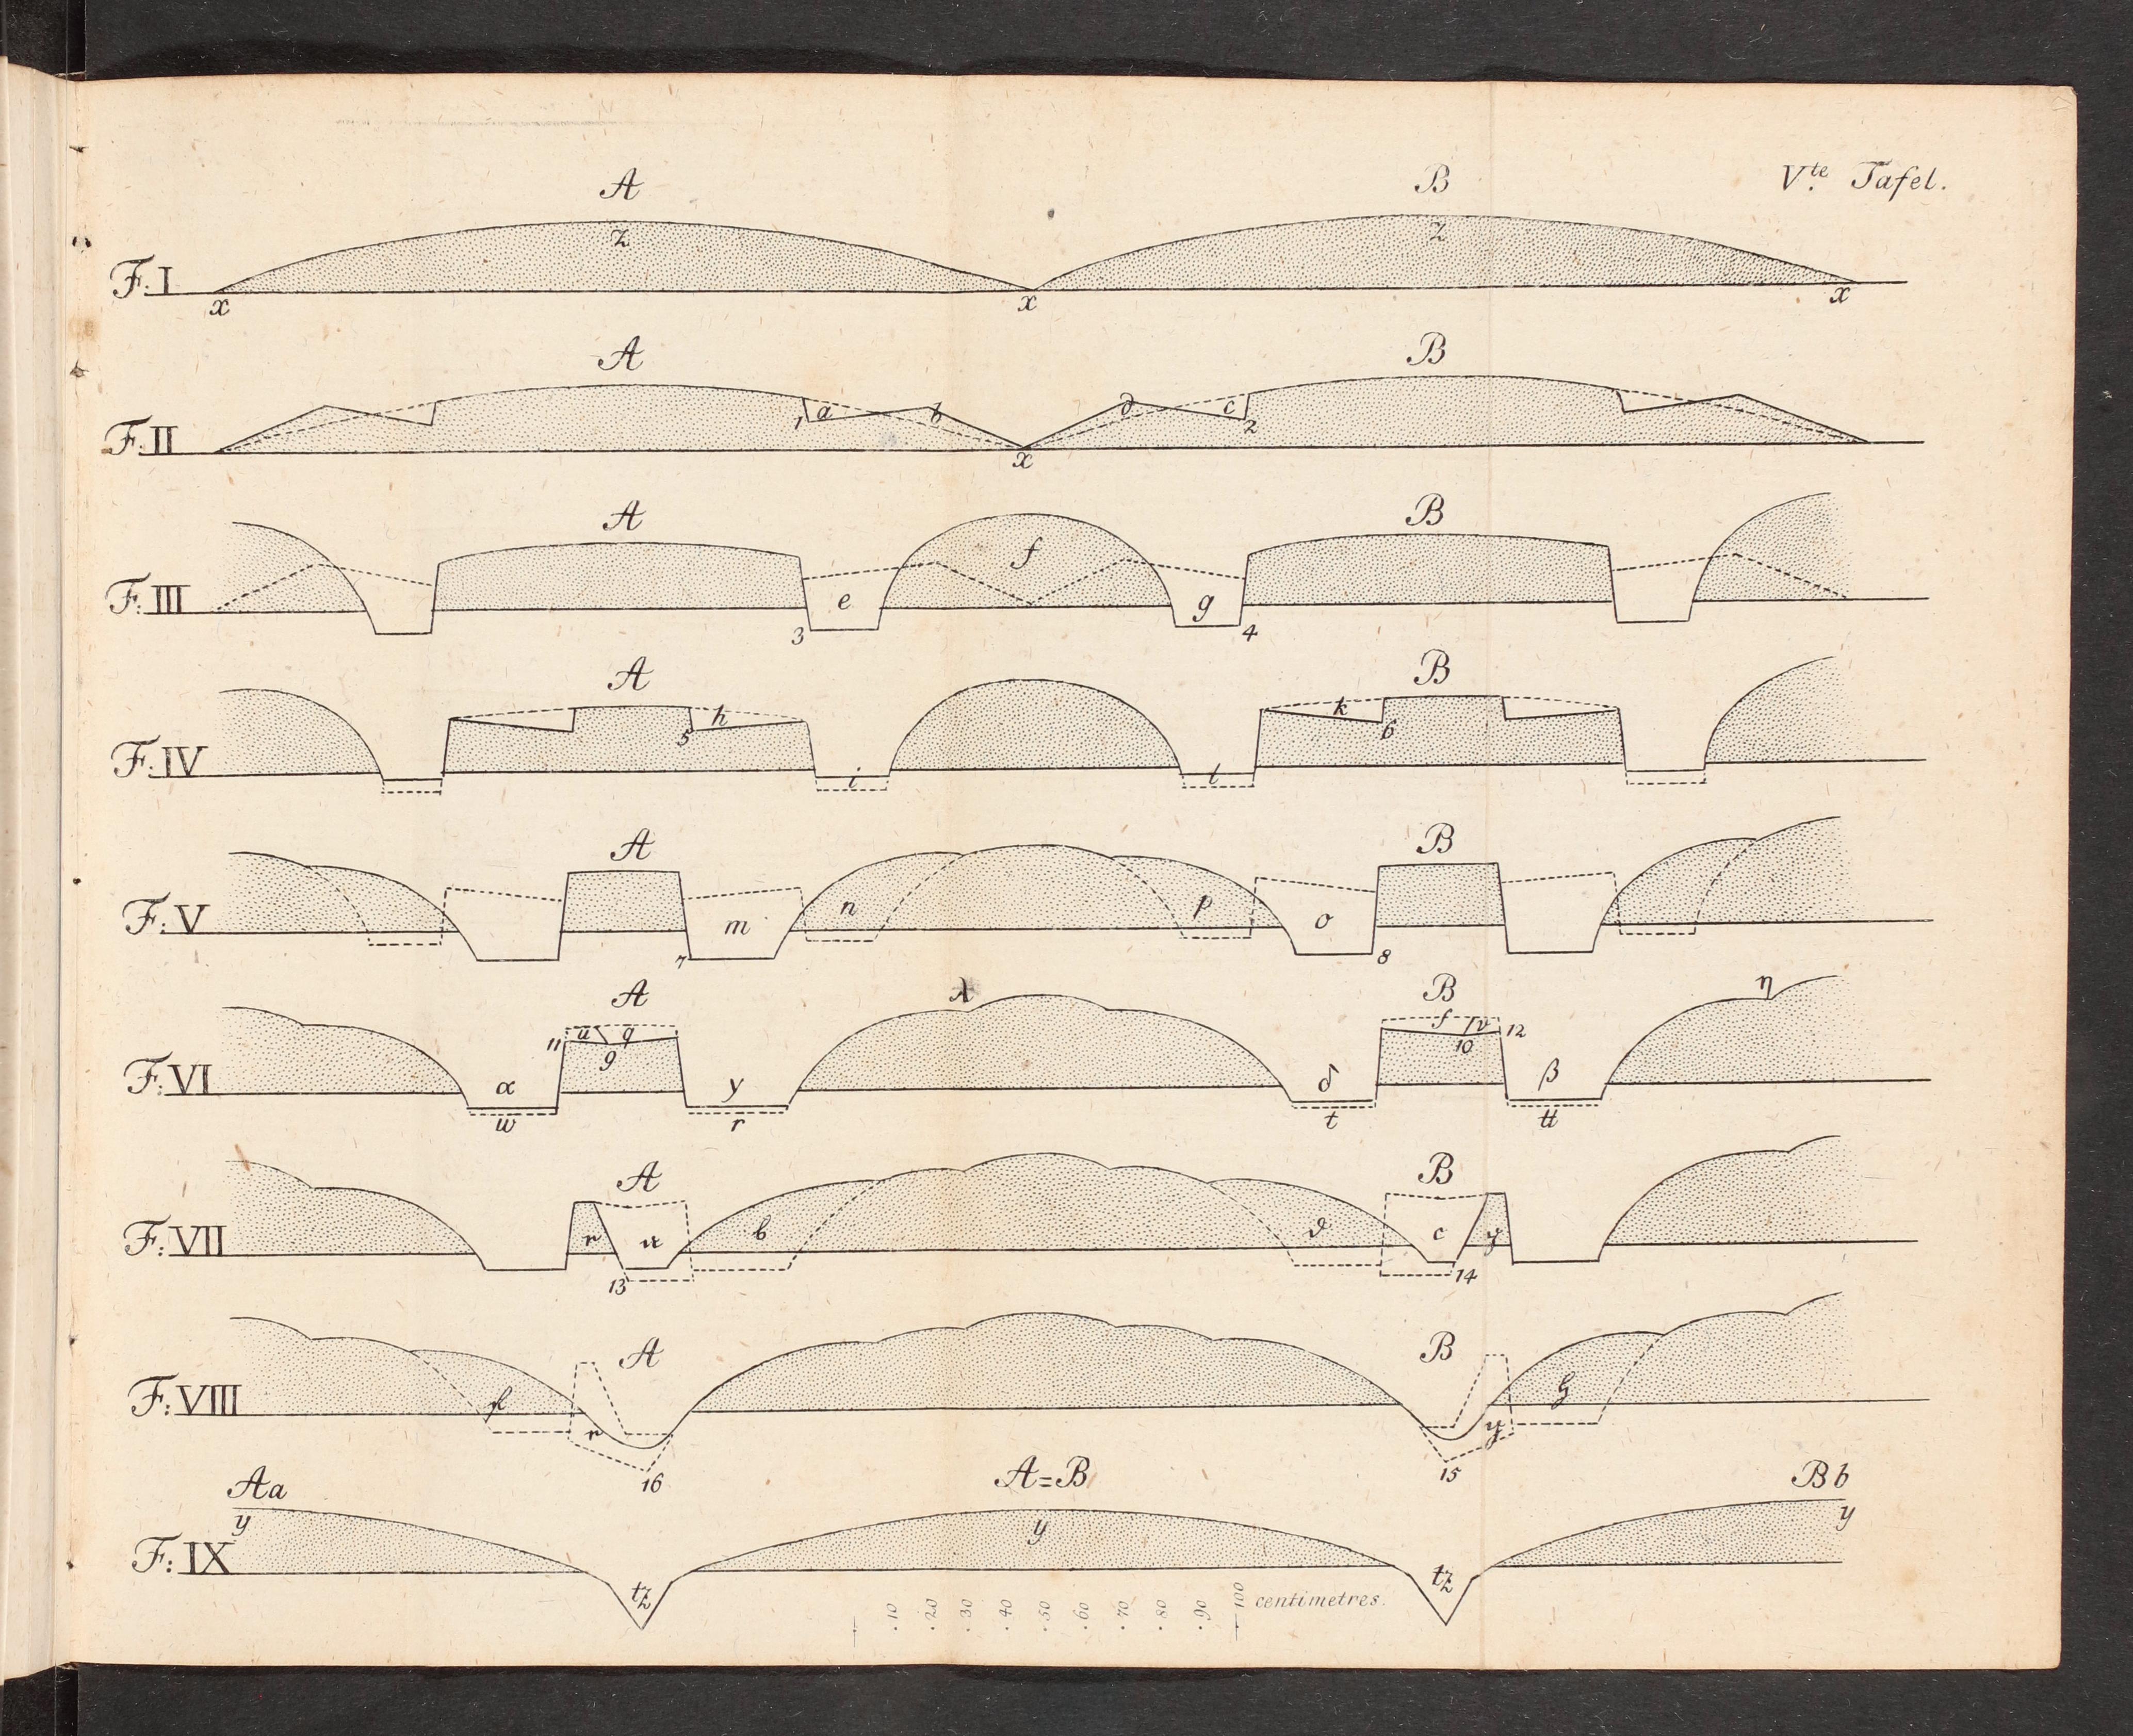 V.te Tafel.
A B
z z
F. I
x x x
A B
a b d c
1 2
F: II
x
A B
f
F: III
e g
3 4
A B
h k
5 6
F. IV
i l
A B
F: V
m n p o
7 8
A λ B η
u q f v
11 9 10 12
F: VI
α y δ β
w r t tt
A B
F: VII
r u b d c y
13 14
A B
F: VIII
r y
16 15
Aa A=B Bb
y y y
F: IX
tz tz
10 20 30 40 50 60 70 80 90 100 centimetres.